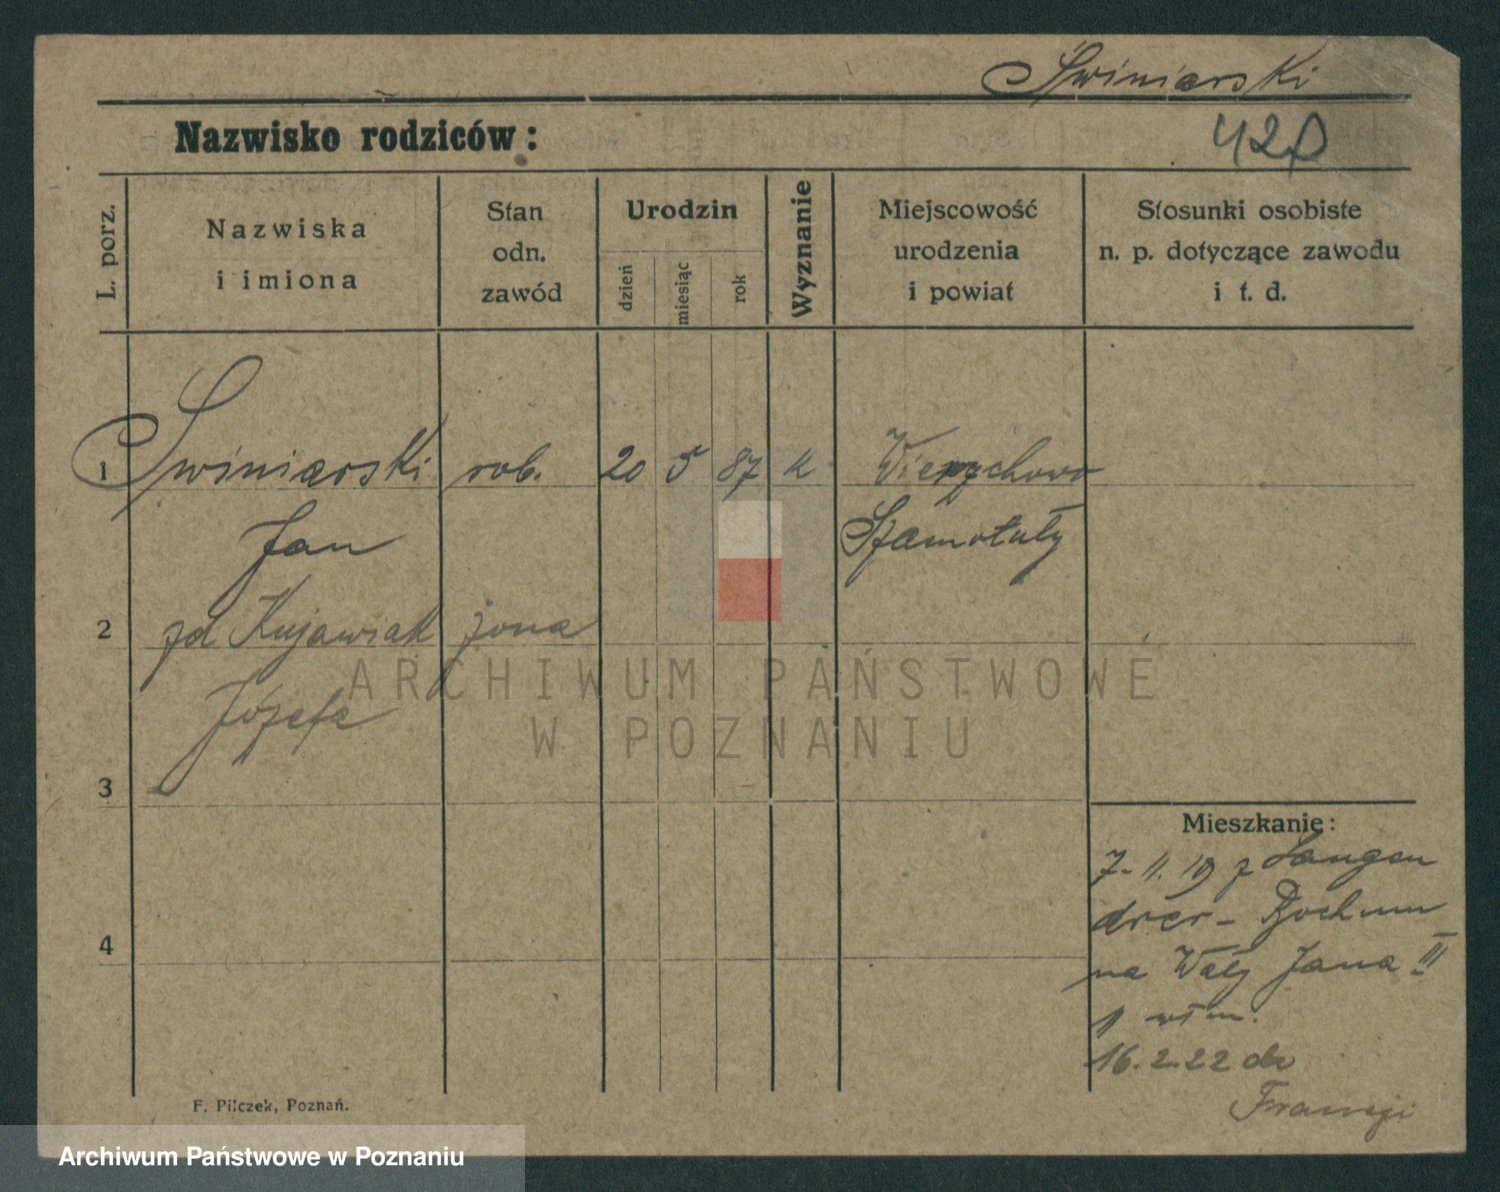 Świniarski
Nazwisko rodziców:
428
L. porz.
Nazwiska
i imiona
Stan
odn.
zawód
Urodzin
dzień
miesiąc
rok
Wyznanie
Miejscowość
urodzenia
i powiat
Stosunki osobiste
n. p. dotyczące zawodu
i t. d.
1 Świniarski rob. 20 5 87 k Wierzchowo
Jan Szamotuły
2 zd Kujawiak żona
Józefa
3
4
Mieszkanie:
7-11.19 z Langen
dreer - Bochum
na Wały Jana III
1 wł m.
16.2.22 do
Francji
F. Pilczek, Poznań.
ARCHIWUM PAŃSTWOWE
W POZNANIU
Archiwum Państwowe w Poznaniu